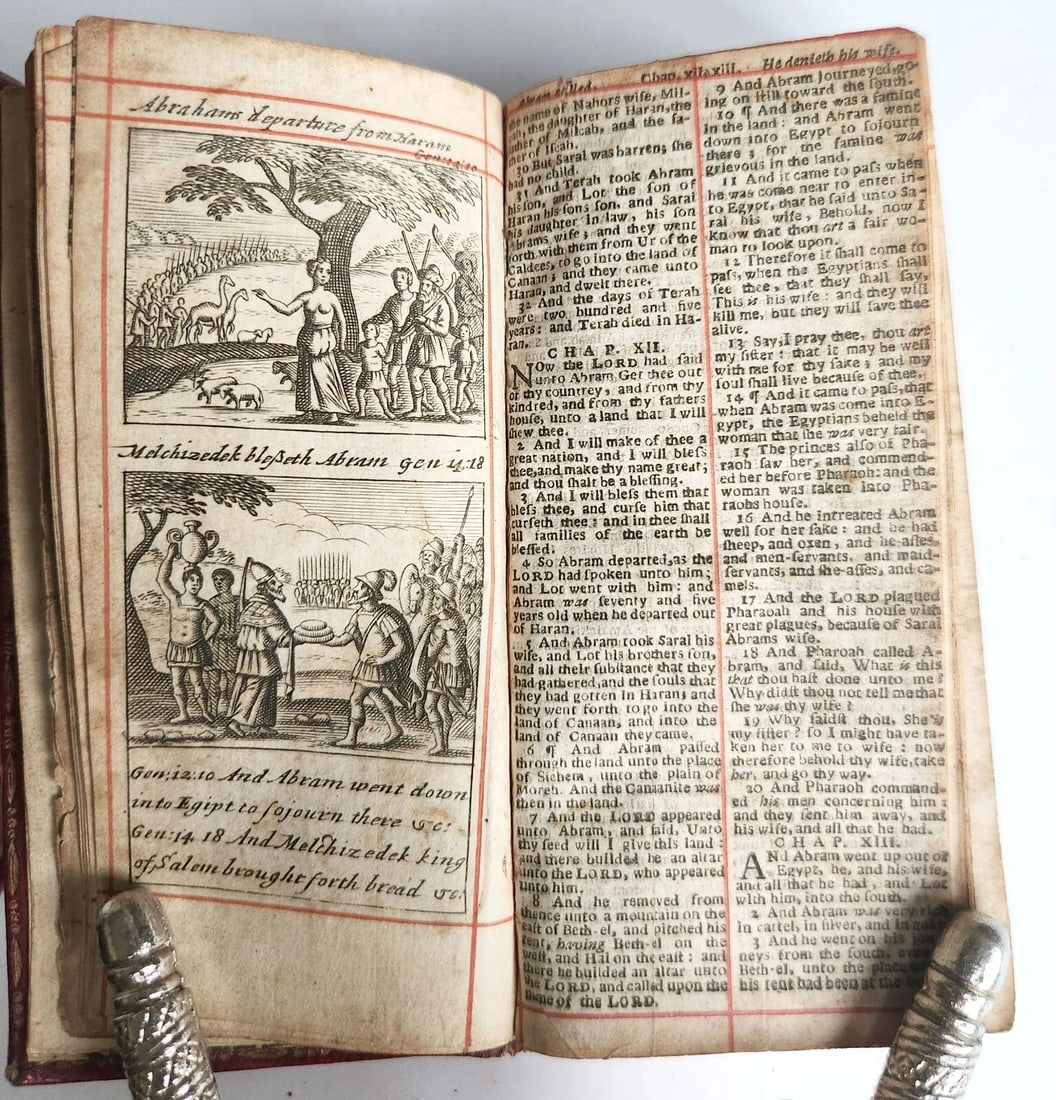 Abrahams departure from Haram
Gen:12:10
Melchizedek bleßeth Abram gen 14:18
Gen:12:10 And Abram went down
into Egipt to ſojourn there &c:
Gen:14 18 And Melchizedek king
of Salem brought forth bread &c:
Chap. xii. xiii. He denieth his wife.
name of Nahors wife, Mil-
the daughter of Haran, the
father of Milcah, and the fa-
ther of Iſcah.
30 But Sarai was barren; ſhe
had no child.
31 And Terah took Abram
his ſon, and Lot the ſon of
Haran his ſons ſon, and Sarai
his daughter in law, his ſon
Abrams wife; and they went
forth with them from Ur of the
Caldees, to go into the land of
Canaan; and they came unto
Haran, and dwelt there.
32 And the days of Terah
were two hundred and five
years: and Terah died in Ha-
ran.
CHAP. XII.
NOw the LORD had ſaid
unto Abram, Get thee out
of thy countrey, and from thy
kindred, and from thy fathers
houſe, unto a land that I will
ſhew thee.
2 And I will make of thee a
great nation, and I will bleſs
thee, and make thy name great;
and thou ſhalt be a bleſſing.
3 And I will bleſs them that
bleſs thee, and curſe him that
curſeth thee: and in thee ſhall
all families of the earth be
bleſſed.
4 So Abram departed, as the
LORD had ſpoken unto him;
and Lot went with him: and
Abram was ſeventy and five
years old when he departed out
of Haran.
5 And Abram took Sarai his
wife, and Lot his brothers ſon,
and all their ſubſtance that they
had gathered, and the ſouls that
they had gotten in Haran; and
they went forth to go into the
land of Canaan, and into the
land of Canaan they came.
6 ¶ And Abram paſſed
through the land unto the place
of Sichem, unto the plain of
Moreh. And the Canaanite was
then in the land.
7 And the LORD appeared
unto Abram, and ſaid, Unto
thy ſeed will I give this land:
and there builded he an altar
unto the LORD, who appeared
unto him.
8 And he removed from
thence unto a mountain on the
eaſt of Beth-el, and pitched his
tent, having Beth-el on the
weſt, and Hai on the eaſt: and
there he builded an altar unto
the LORD, and called upon the
name of the LORD.
9 And Abram journeyed, go-
ing on ſtill toward the ſouth.
10 ¶ And there was a famine
in the land: and Abram went
down into Egypt to ſojourn
there; for the famine was
grievous in the land.
11 And it came to paſs when
he was come near to enter in-
to Egypt, that he ſaid unto Sa-
rai his wife, Behold, now I
know that thou art a fair wo-
man to look upon.
12 Therefore it ſhall come to
paſs, when the Egyptians ſhall
ſee thee, that they ſhall ſay,
This is his wife: and they will
kill me, but they will ſave thee
alive.
13 Say, I pray thee, thou art
my ſiſter: that it may be well
with me for thy ſake; and my
ſoul ſhall live becauſe of thee.
14 ¶ And it came to paſs, that
when Abram was come into E-
gypt, the Egyptians beheld the
woman that ſhe was very fair.
15 The princes alſo of Pha-
raoh ſaw her, and commend-
ed her before Pharaoh: and the
woman was taken into Pha-
raohs houſe.
16 And he intreated Abram
well for her ſake: and he had
ſheep, and oxen, and he-aſſes,
and men-ſervants, and maid-
ſervants, and ſhe-aſſes, and ca-
mels.
17 And the LORD plagued
Pharaoah and his houſe with
great plagues, becauſe of Sarai
Abrams wife.
18 And Pharoah called A-
bram, and ſaid, What is this
that thou haſt done unto me?
Why didſt thou not tell me that
ſhe was thy wife?
19 Why ſaidſt thou, She is
my ſiſter? ſo I might have ta-
ken her to me to wife: now
therefore behold thy wife, take
her, and go thy way.
20 And Pharaoh command-
ed his men concerning him:
and they ſent him away, and
his wife, and all that he had.
CHAP. XIII.
ANd Abram went up out of
Egypt, he, and his wife,
and all that he had, and Lot
with him, into the ſouth.
2 And Abram was very rich
in cattel, in ſilver, and in
3 And he went on his jour-
neys from the ſouth, even
Beth-el, unto the place
his tent had been at the